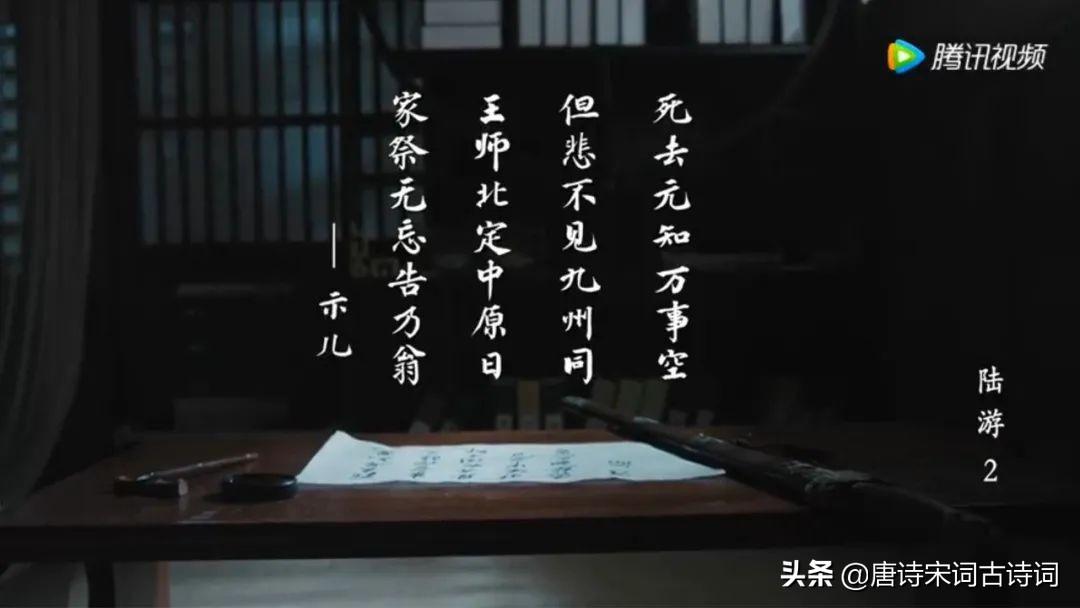 腾讯视频
死去元知万事空
但悲不见九州同
王师北定中原日
家祭无忘告乃翁
—示儿
陆游2
头条 @唐诗宋词古诗词